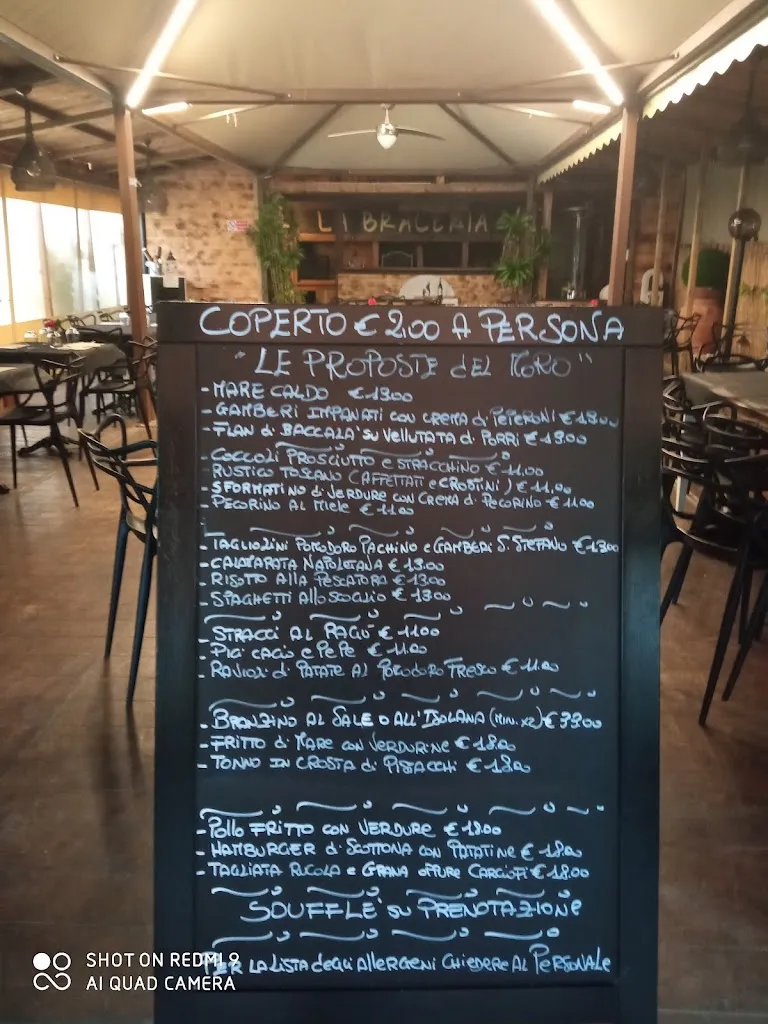 LA BRACCAIA
COPERTO € 2.00 A PERSONA
"LE PROPOSTE del MORO"
- MARE CALDO € 13.00
- GAMBERI IMPANATI con CREMA di PEPERONI € 13.00
- FLAN di BACCALA' su VELLUTATA di PORRI € 13.00
- COCCOLI PROSCIUTTO e STRACCHINO € 11,00
RUSTICO TOSCANO (AFFETTATI e CROSTINI) € 11,00
- SFORMATINO di VERDURE con CREMA di PECORINO € 11.00
- PECORINO AL MIELE € 11.00
- TAGLIOLINI POMODORO PACHINO e GAMBERI S. STEFANO € 13.00
- CALAMARATA NAPOLETANA € 13.00
- RISOTTO ALLA PESCATORA € 13.00
- SPAGHETTI ALLO SCOGLIO € 13.00
- STRACCI AL RAGU' € 11.00
- PICI CACIO e PEPE € 11.00
- RAVIOLI di PATATE AL POMODORO FRESCO € 11.00
- BRANZINO AL SALE O ALL'ISOLANA (MIN. X2) € 33.00
- FRITTO di MARE con VERDURINE € 18.00
- TONNO IN CROSTA di PISTACCHI € 18.00
- POLLO FRITTO CON VERDURE € 18.00
- HAMBURGER di SCOTTONA con PATATINE € 18.00
- TAGLIATA RUCOLA e GRANA oppure CARCIOFI € 18.00
SOUFFLE' su PRENOTAZIONE
PER LA LISTA degli ALLERGENI CHIEDERE AL PERSONALE
SHOT ON REDMI 9
AI QUAD CAMERA